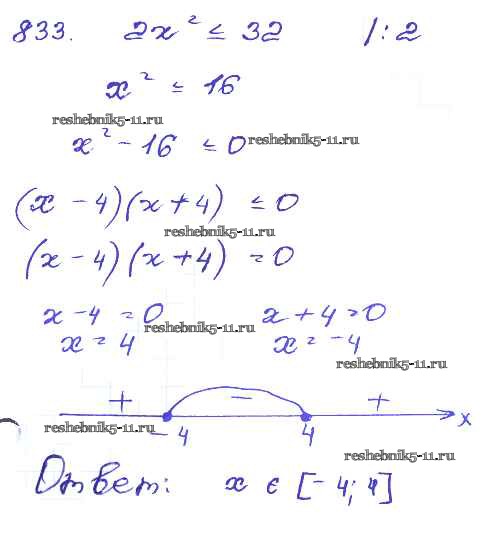 833. 2x² ≤ 32 |:2
x² ≤ 16
reshebnik5-11.ru
x² - 16 ≤ 0 reshebnik5-11.ru
(x - 4)(x + 4) ≤ 0
reshebnik5-11.ru
(x - 4)(x + 4) = 0
x - 4 = 0 x + 4 = 0
reshebnik5-11.ru
x = 4 x = -4
reshebnik5-11.ru
+ - +
-4 4 x
reshebnik5-11.ru
reshebnik5-11.ru
Ответ: x ∈ [-4; 4]